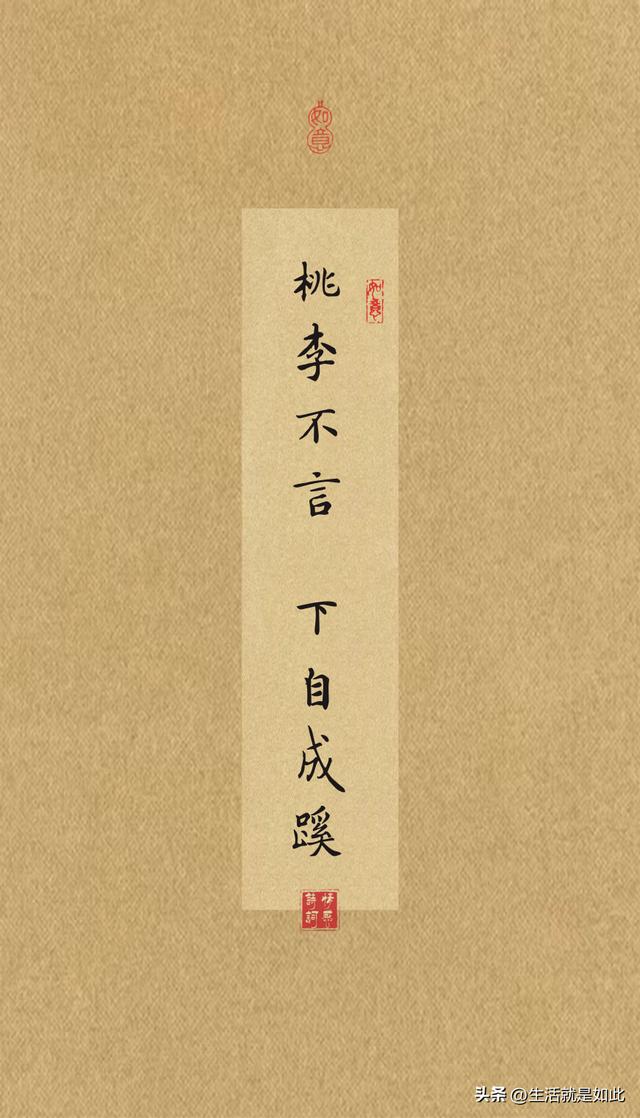 如意
如意
桃李不言 下自成蹊
诗词
头条 @生活就是如此